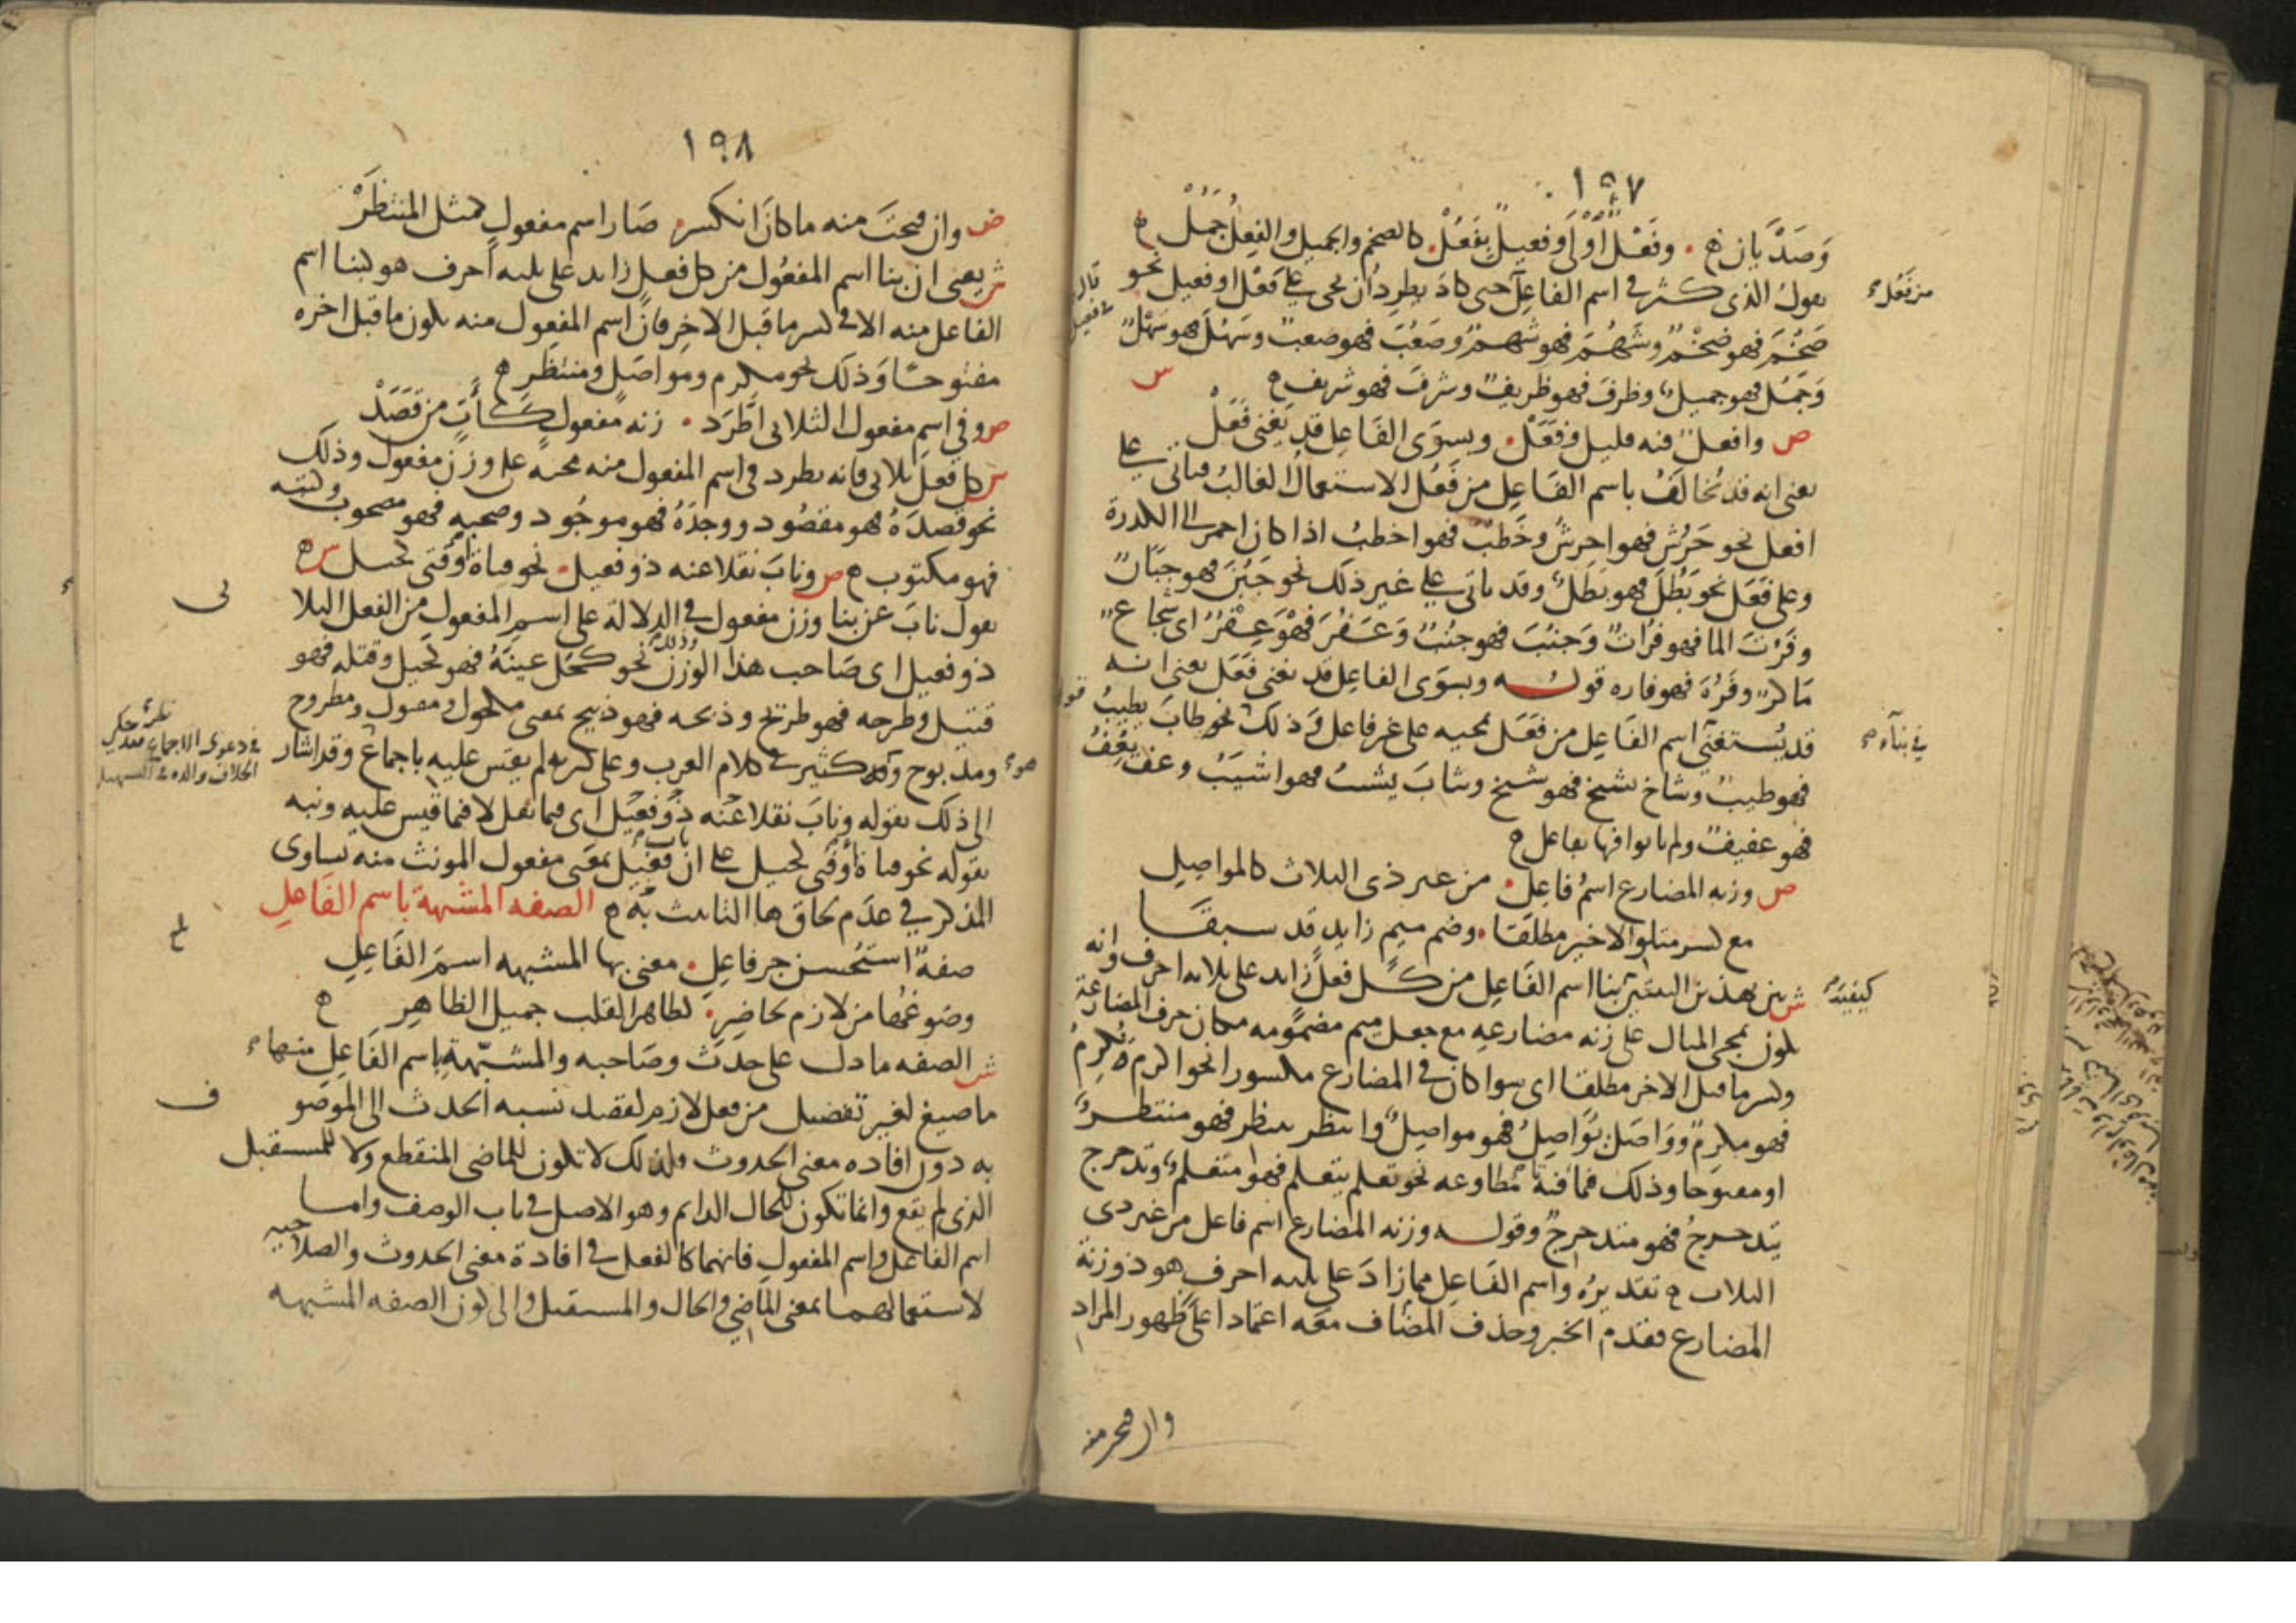 ١٩٧
وَصَدْيَان ه وفَعْلٌ اوْلَى وفعيلٌ بِفَعُلْ كالضخم والجميل والفِعلُ جَمُلْ ه
يقول الذى كثر فى اسم الفاعل حتى كاد يطرد أن يجى على فَعْل او فعيل نحو
ضَخُمَ فهو ضَخْمٌ وشَهُمَ فهو شَهْمٌ وصَعُبَ فهو صعبٌ وسَهُلَ فهو سَهْلٌ
وَجَمُلَ فهو جميلٌ وظرفَ فهو ظريفٌ وشرفَ فهو شريف ه
ص وافعلٌ فيه قليل وفَعَلْ وبسوَى الفَاعِل قد يَغنى فَعَلْ
يعنى انه قد يُخالَفُ باسم الفَاعِلِ من فَعُل الاستعمالُ الغالبُ فياتى على
افعل نحو حَرُشَ فهو احرشُ وخَطُبَ فهو اخطبُ اذا كان احمر الى الكدرة
وعلى فَعَل نحو بَطُلَ فهو بَطَلٌ وقد ياتى على غير ذلك نحو جَبُنَ فهو جَبَانٌ
وفَرُتَ الما فهو فُرَاتٌ وَجنُبَ فهو جنُبٌ وَعَفُرَ فَهْوَ عِفْرٌ اى شجاع
ماكرٌ وفَرُهَ فهو فاره قوله وبسوَى الفاعِل قد يغنى فَعَل يعنى انه
قد يُستغنَى اسم الفَاعِل من فَعَل بمجيه على غير فاعل وَذلك نحو طابَ يطيبُ
فهو طيبٌ وشاخ يشيخ فهو شيخ وشابَ يشيبُ فهو اشيَبُ وعفَّ يَعِفُّ
فهو عفيفٌ ولم ياتوا فيها بفاعل ه
ص وزنه المضارع اسمُ فاعِلِ من غير ذى الثلاث كالمواصِلِ
مع كسر متلو الاخير مطلقَا وضم ميم زايدٍ قد سبقَا
ش بين بهذين البيتين بنا اسم الفَاعِل من كل فعلٍ زايد على ثلاثه احرف وانه
يكون بمجى المثال على زنه مضارعِهِ مع جعل ميم مضمومه مكان حرف المضارعة
وكسر ما قبل الاخر مطلقا اى سوا كان فى المضارع مكسورا نحو اكرم يُكرِمُ
فهو مكرِمٌ ووَاصَلَ يُوَاصِلُ فهو مواصِلٌ وانتظر ينتظر فهو منتظرٌ
او مفتوحا وذلك فيما فيه تا مُطاوعه نحو تعلم يتعلم فهو متعلمٌ وتدحرج
يتدحرجُ فهو متدحرجٌ وقوله وزنه المضارع اسم فاعل من غير ذى
الثلاث ه تقديرُه واسم الفَاعِل مما زادَ على ثلثه احرفٍ هو ذو زنة
المضارع فقدم الخبر وحذف المضاف معَه اعتمادا على ظهور المراد
من فَعُل
فى بنآءه
كيفيَّة
١٩٨
ص وان فتحتَ منه ما كانَ انكسر صَار اسم مفعولٍ كمثل المنتظَرْ
ش يعنى ان بنا اسم المفعُول من كل فعل زايد على ثلثه احرف هو كبنا اسم
الفاعل منه الا فى كسر ما قبل الاخِر فانَّ اسم المفعول منه يكون ما قبل اخره
مفتوحًا وَذلَك نحو مكرم ومواصَل ومنتظَرٍ ه
ص وفى اسمِ مفعولِ الثلاثى اطَّرَد زنه مفعولٍ كآتٍ من قَصَدْ
ش كل فعلٍ ثلاثى فانه يطرد فى اسم المفعول منه مجيه على وزن مفعول وذلك
نحو قصدَهُ فهو مقصُود ووجدَهُ فهو موجُود وصحبه فهو مصحوب وكتبه
فهو مكتوب ه ص ونابَ نقلا عنه ذو فعيل نحو فتاة أوفتى كحيل ش ه
يقول نابَ عن بنا وزن مفعول فى الدلالة على اسمِ المفعول من الفعل الثلا
ذو فعيل اى صَاحب هذا الوزن وذلك نحو كحَل عينَهُ فهو كحَيل وقتله فهو
قتيل وطرحه فهو طريح وذبحه فهو ذبيح بمعنى مكحول ومقتول ومطروح
ومذبوح وهو كثير فى كلام العرب وعلى كثرته لم يقس عليه باجماع وقد اشار
الى ذلك بقوله ونابَ نقلا عنه ذو فعيل اى فيما نقل لا فيما قيس عليه ونبه
بقوله نحو فتاة أوفتى كحيل على ان باب فعيل بمعنى مفعول المونث منه يساوى
المذكر فى عدَم لحاق ها التانيث به ه الصفه المشبهة باسم الفَاعلِ
صفةٌ استُحسن جر فاعِلِ معنى بها المشبهه اسمَ الفَاعِلِ
وصَوغُها من لازم لحاضِرِ كطاهر القلب جميل الظاهِرِ ه
ش الصفه ما دل على حدَث وصَاحبه والمشبّهة باسم الفَاعِل منها
ما صيغ لغير تفضيل من فعل لازم لقصد نسبه الحدث الى الموصو
به دون افاده معنى الحدوث ولذلك لا تكون للماضى المنقطع ولا للمستقبل
الذى لم يقع وانما تكون للحال الدايم وهو الاصل فى باب الوصف واما
اسم الفاعل واسم المفعول فانهما كالفعل فى افادة معنى الحدوث والصلاحيه
لاستعمالهما بمعنى الماضى والحال والمستقبل والى كون الصفه المشبهه